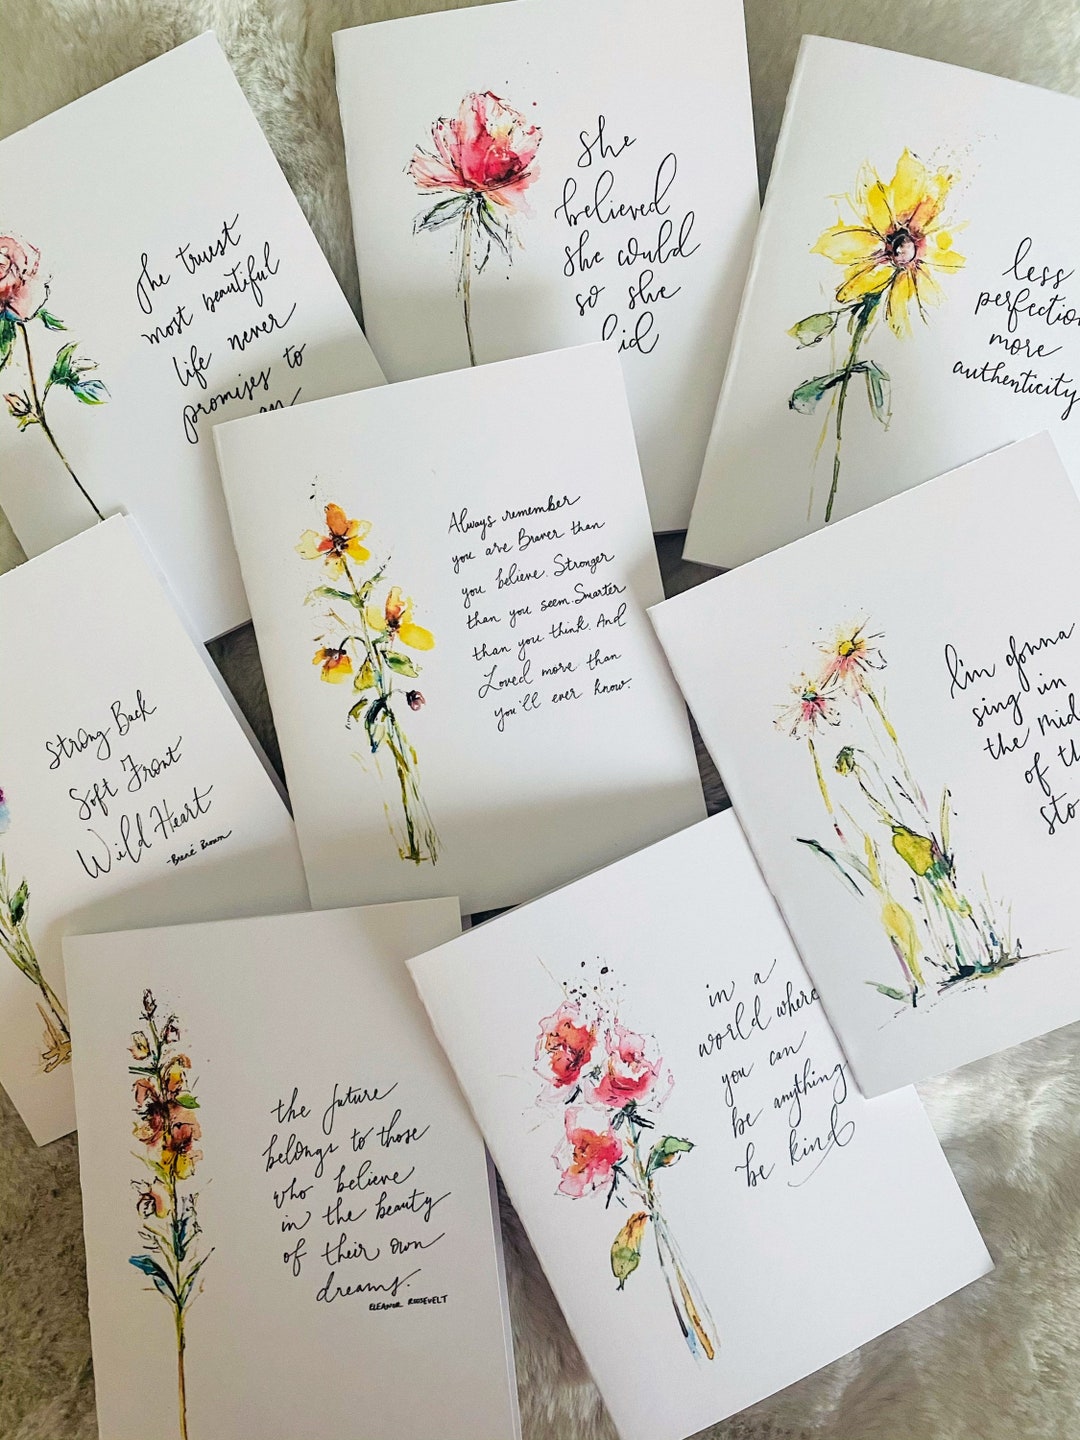 The truest
most beautiful
life never
promises to
an
She
believed
she could
so she
did
less
perfection
more
authenticity
Always remember
you are Braver than
you believe. Stronger
than you seem. Smarter
than you think. And
Loved more than
you'll ever know.
I'm gonna
sing in
the mid
of th
sto
Strong Back
Soft Front
Wild Heart
-Brené Brown
the future
belongs to those
who believe
in the beauty
of their own
dreams.
ELEANOR ROOSEVELT
in a
world where
you can
be anything
be kind